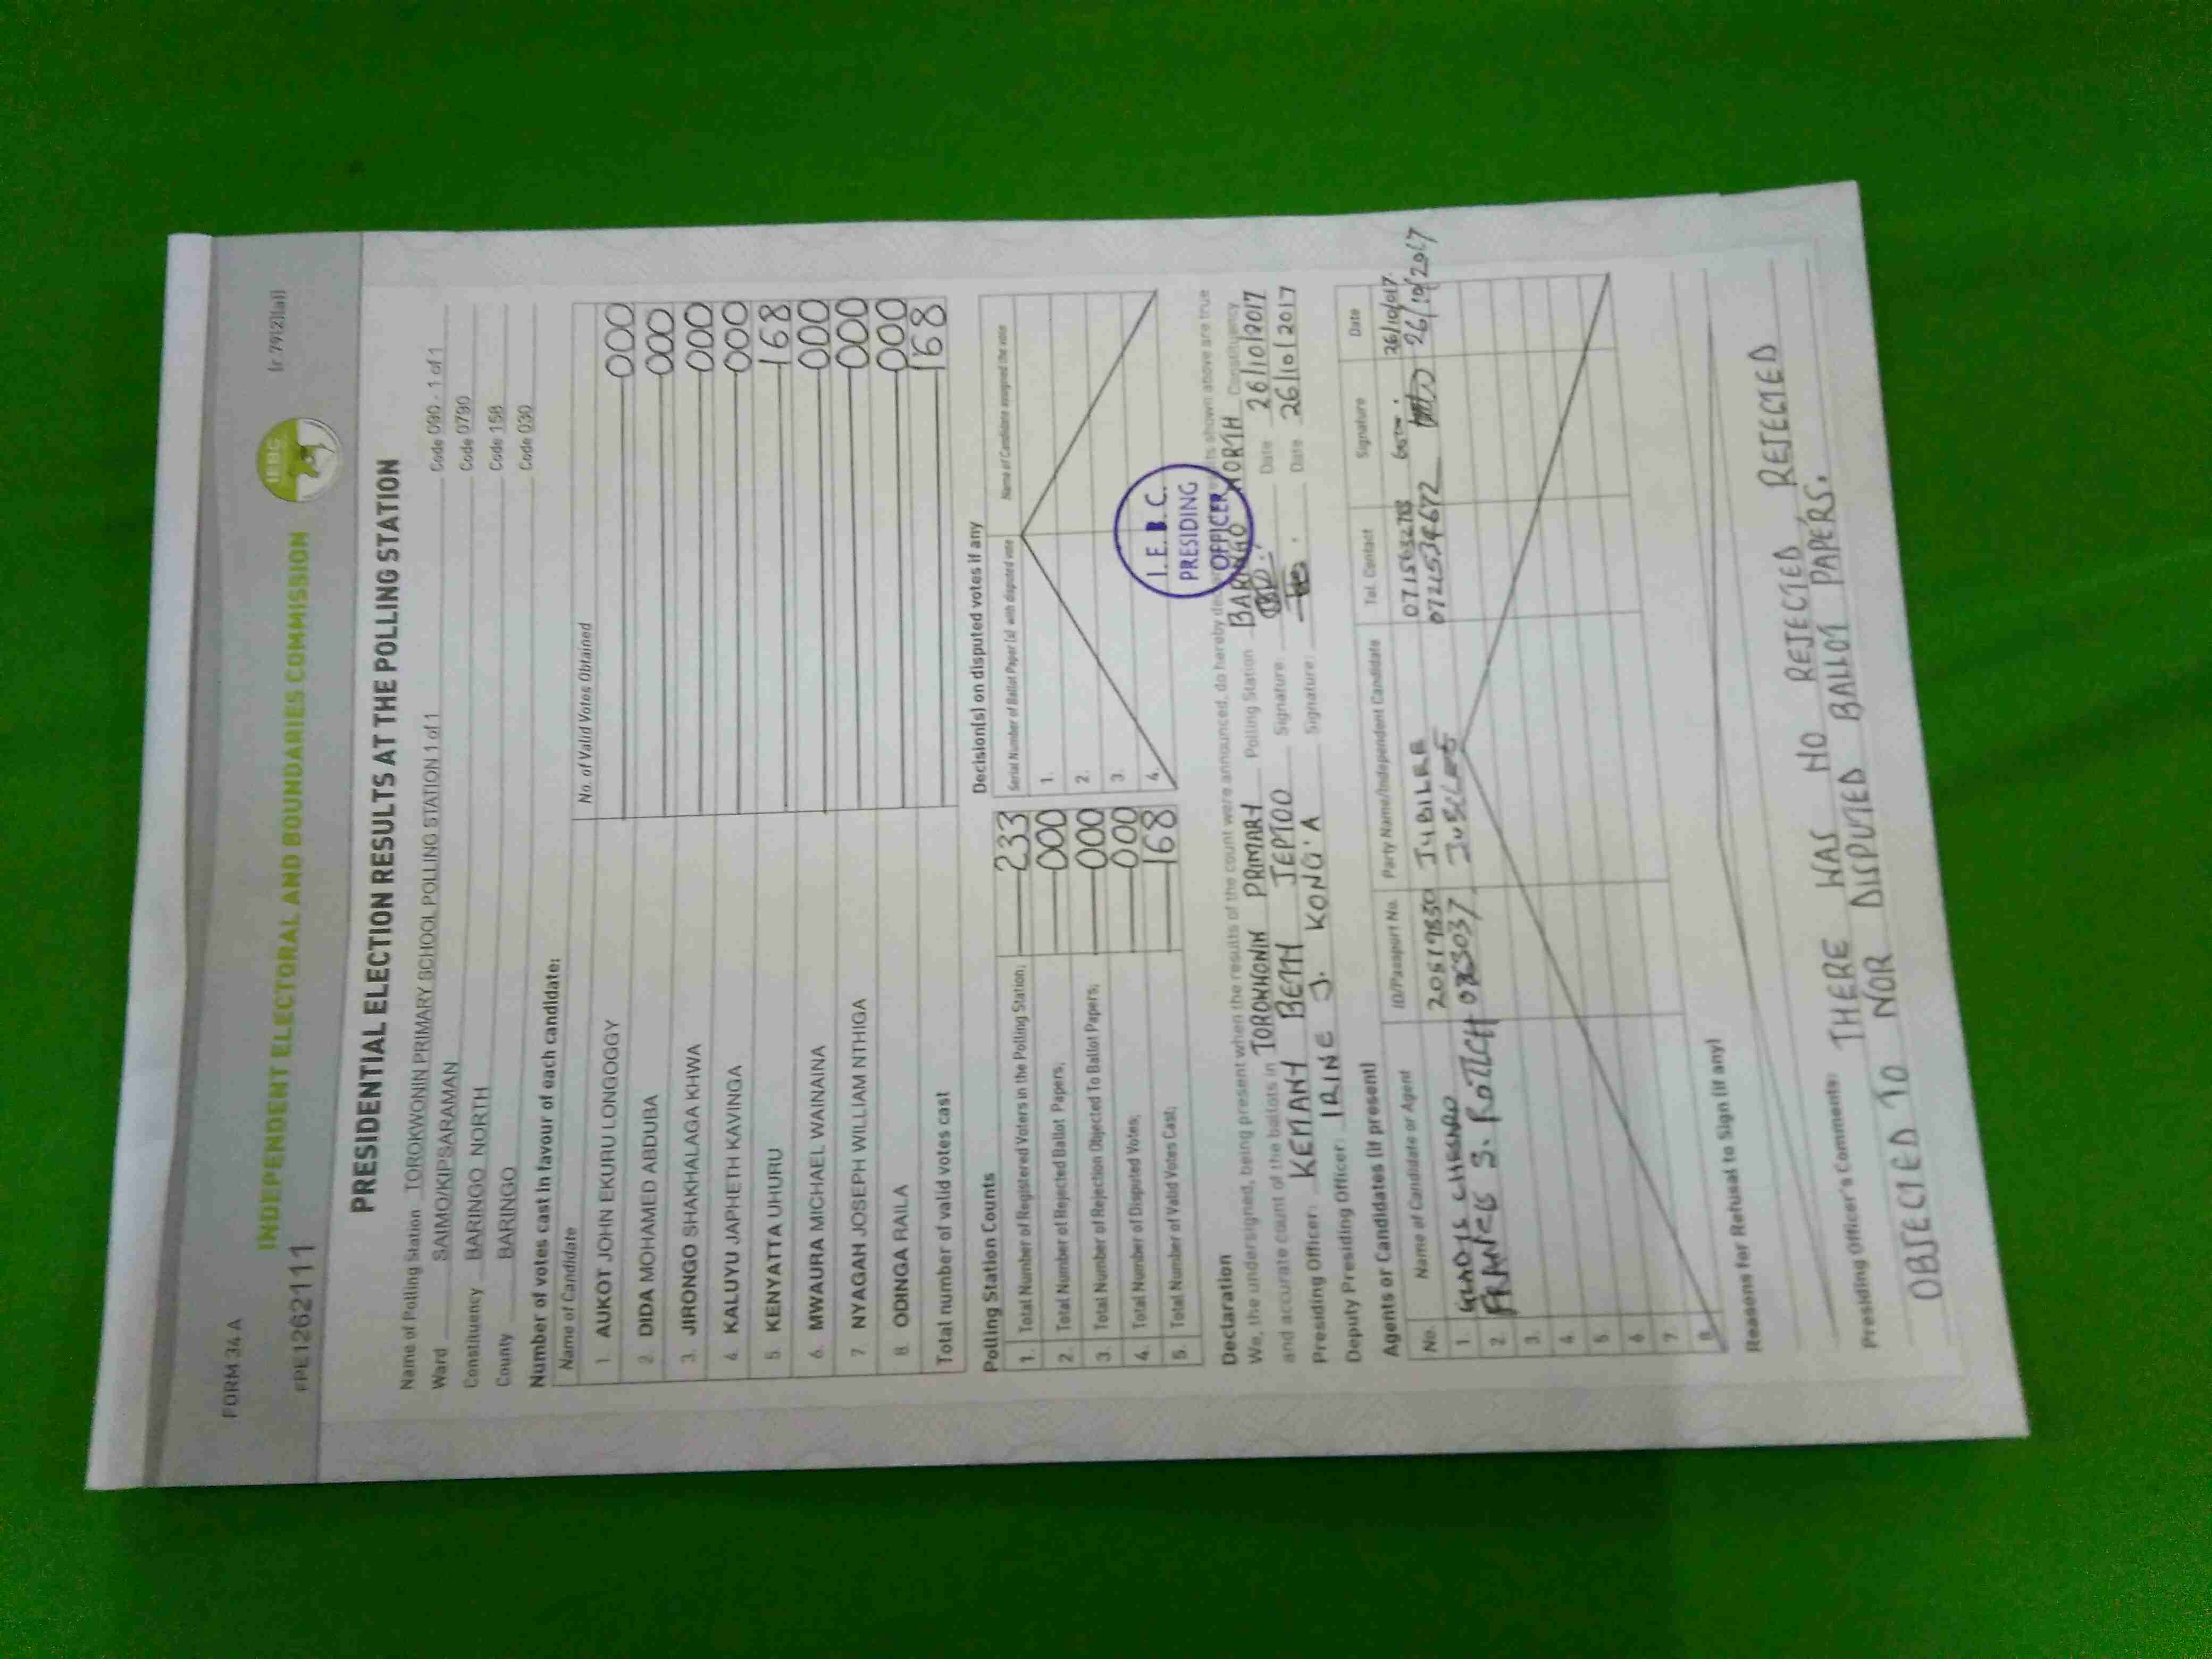 FORM 34 A
[r. 79(2)(a)]
IEBC
INDEPENDENT ELECTORAL AND BOUNDARIES COMMISSION
FPE1262111
PRESIDENTIAL ELECTION RESULTS AT THE POLLING STATION
Name of Polling Station TOROKWONIN PRIMARY SCHOOL POLLING STATION 1 of 1 Code 090 - 1 of 1
Ward SAIMO/KIPSARAMAN Code 0790
Constituency BARINGO NORTH Code 158
County BARINGO Code 030
Number of votes cast in favour of each candidate:
Name of Candidate No. of Valid Votes Obtained
1. AUKOT JOHN EKURU LONGOGGY 000
2. DIDA MOHAMED ABDUBA 000
3. JIRONGO SHAKHALAGA KHWA 000
4. KALUYU JAPHETH KAVINGA 000
5. KENYATTA UHURU 168
6. MWAURA MICHAEL WAINAINA 000
7. NYAGAH JOSEPH WILLIAM NTHIGA 000
8. ODINGA RAILA 000
Total number of valid votes cast 168
Polling Station Counts
1. Total Number of Registered Voters in the Polling Station; 233
2. Total Number of Rejected Ballot Papers; 000
3. Total Number of Rejection Objected To Ballot Papers; 000
4. Total Number of Disputed Votes; 000
5. Total Number of Valid Votes Cast; 168
Decision(s) on disputed votes if any
Serial Number of Ballot Paper (s) with disputed vote Name of Candidate assigned the vote
1.
2.
3.
4.
I.E.B.C.
PRESIDING
OFFICER
Declaration
We, the undersigned, being present when the results of the count were announced, do hereby shown above are true
and accurate count of the ballots in TOROKWONIN PRIMARY Polling Station BARINGO NORTH Constituency
Presiding Officer: KEMANY BETTY JEPTOO Signature: Date 26/10/2017
Deputy Presiding Officer: IRINE J. KONG'A Signature: Date 26/10/2017
Agents or Candidates (if present)
No. Name of Candidate or Agent ID/Passport No. Party Name/Independent Candidate Tel. Contact Signature Date
1. JUBILEE 26/10/017
2. 26/10/2017
3.
4.
5.
6.
7.
8.
Reasons for Refusal to Sign (if any)
Presiding Officer's Comments: THERE WAS NO REJECTED, REJECTED
OBJECTED TO NOR DISPUTED BALLOT PAPERS.